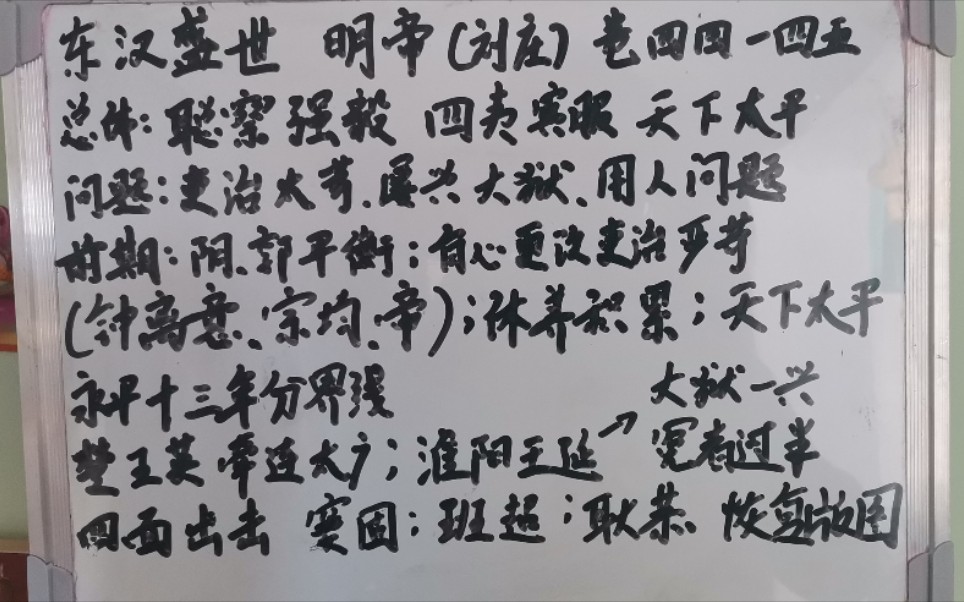 东汉盛世 明帝(刘庄) 卷四四-四五
总体:聪察强毅 四夷宾服 天下太平
问题:吏治太苛、屡兴大狱、用人问题
前期:阴、郭平衡;有心更改吏治严苛
(钟离意、宗均、帝);休养积累;天下太平
永平十三年分界线
大狱一兴
楚王英牵连太广;淮阳王延↗冤者过半
四面出击 窦固;班超;耿恭 恢复版图